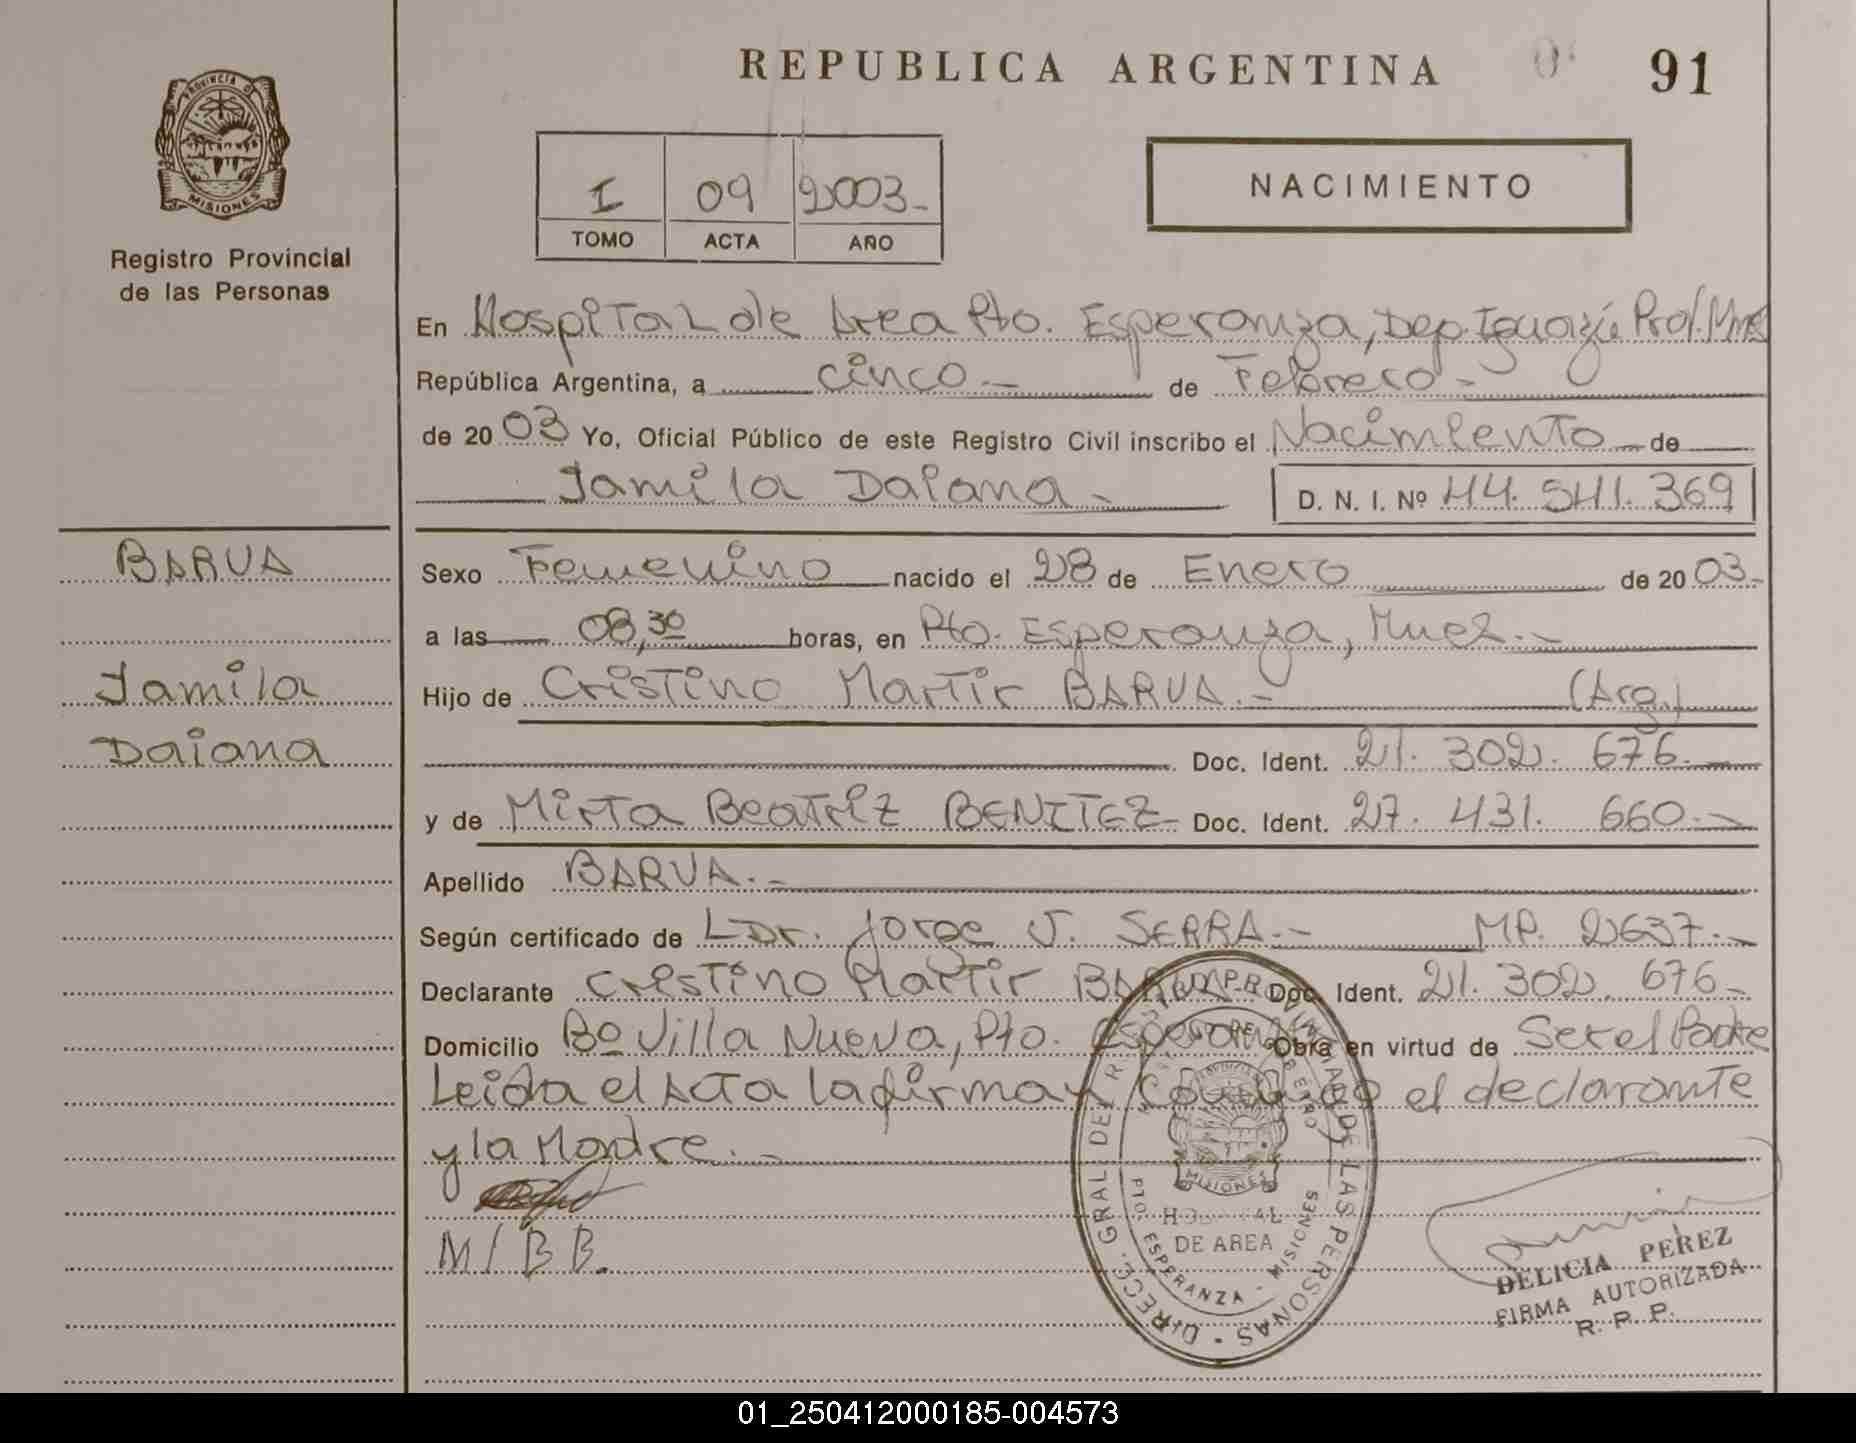 REPUBLICA ARGENTINA
91
PROVINCIA D
MISIONES
Registro Provincial
de las Personas
I 09 2003-
TOMO ACTA AÑO
NACIMIENTO
En Hospital de Area Pto. Esperanza, Dep. Iguazú Prov. Mnes
República Argentina, a cinco.- de Febrero.-
de 2003 Yo, Oficial Público de este Registro Civil inscribo el Nacimiento de
Jamila Daiana.- D. N. I. Nº 44. 541. 369
BARUA
Jamila
Daiana
Sexo Femenino nacido el 28 de Enero de 2003.-
a las 08,30 horas, en Pto. Esperanza, Mnes.-
Hijo de Cristino Martir BARUA.- (Arg.)
Doc. Ident. 21. 302. 676.-
y de Mirta Beatriz BENITEZ Doc. Ident. 27. 431. 660.-
Apellido BARUA.-
Según certificado de Dr. Jorge J. SERRA.- MP. 2637.-
Declarante Cristino Martir BARUA Doc. Ident. 21. 302. 676-
Domicilio Bº Villa Nueva, Pto. Esperanza Obra en virtud de Ser el Padre
Leida el Acta la firman Conmigo el declarante
y la Madre.-
M/BB.
DIRECC. GRAL DEL REGISTRO PROVINCIAL DE LAS PERSONAS
HOSPITAL
DE AREA
PTO. ESPERANZA - MISIONES
MISIONES
DELICIA PEREZ
FIRMA AUTORIZADA
R. P. P.
01_250412000185-004573